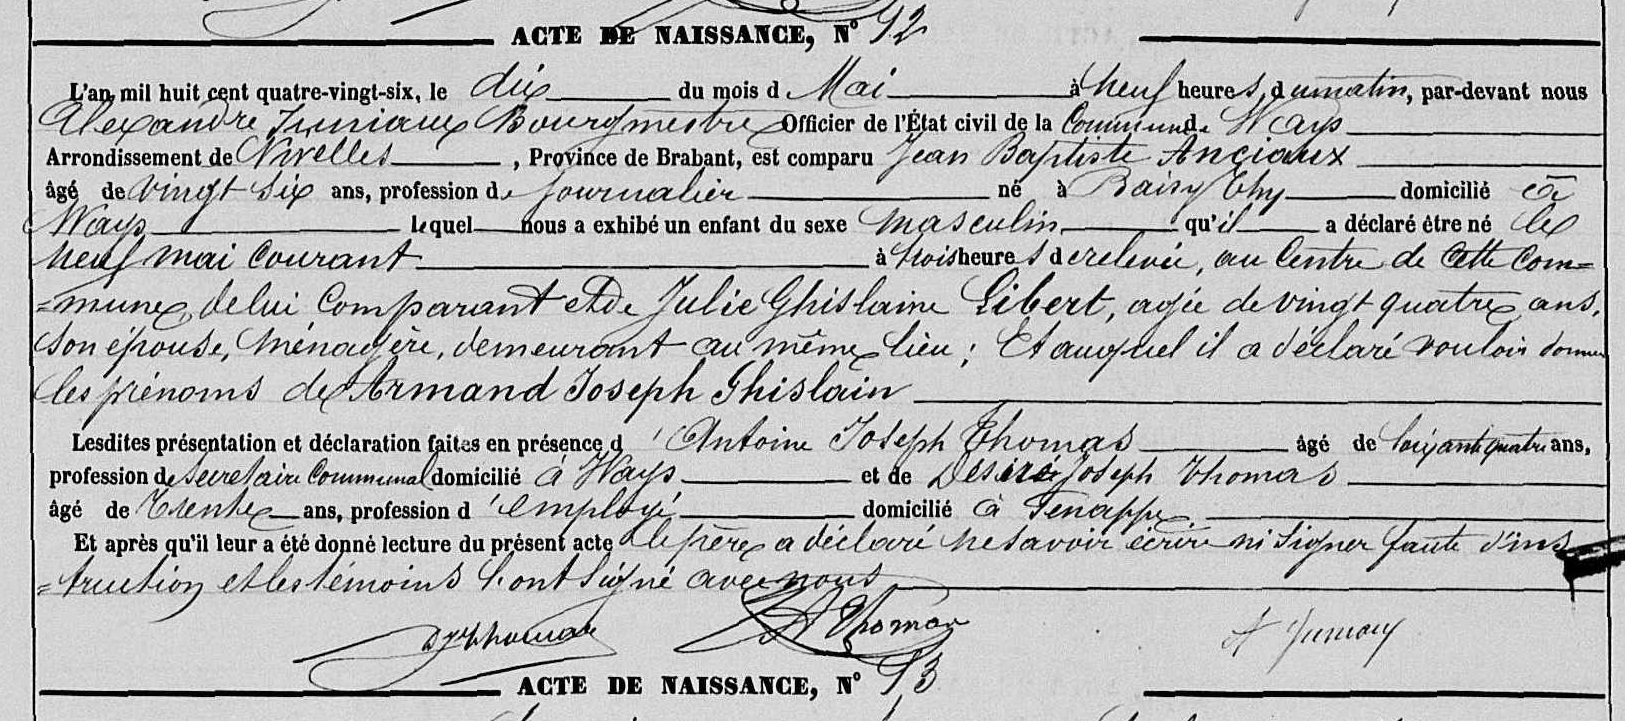 ACTE DE NAISSANCE, N° 12
L'an mil huit cent quatre-vingt-six, le dix du mois d Mai à neuf heures, du matin, par-devant nous
Alexandre Juniaux Bourgmestre Officier de l'État civil de la Commune de Ways
Arrondissement de Nivelles, Province de Brabant, est comparu Jean Baptiste Anciaux
âgé de vingt six ans, profession de journalier né à Baisy Thy domicilié à
Ways lequel nous a exhibé un enfant du sexe masculin qu'il a déclaré être né le
neuf mai courant à trois heures de relevée, au Centre de cette com=
=mune, de lui Comparant et de Julie Ghislaine Libert, agée de vingt quatre ans,
son épouse, ménagère, demeurant au même lieu ; Et auquel il a déclaré vouloir donner
les prénoms de Armand Joseph Ghislain
Lesdites présentation et déclaration faites en présence d'Antoine Joseph Thomas âgé de soixante quatre ans,
profession de secrétaire communal domicilié à Ways et de Désiré Joseph Thomas
âgé de Trente ans, profession d'employé domicilié à Genappe
Et après qu'il leur a été donné lecture du présent acte le père a déclaré ne savoir écrire ni signer faute d'ins
=truction et les témoins l'ont signé avec nous
DJ Thomas A Thomas A Juniaux
ACTE DE NAISSANCE, N° 13